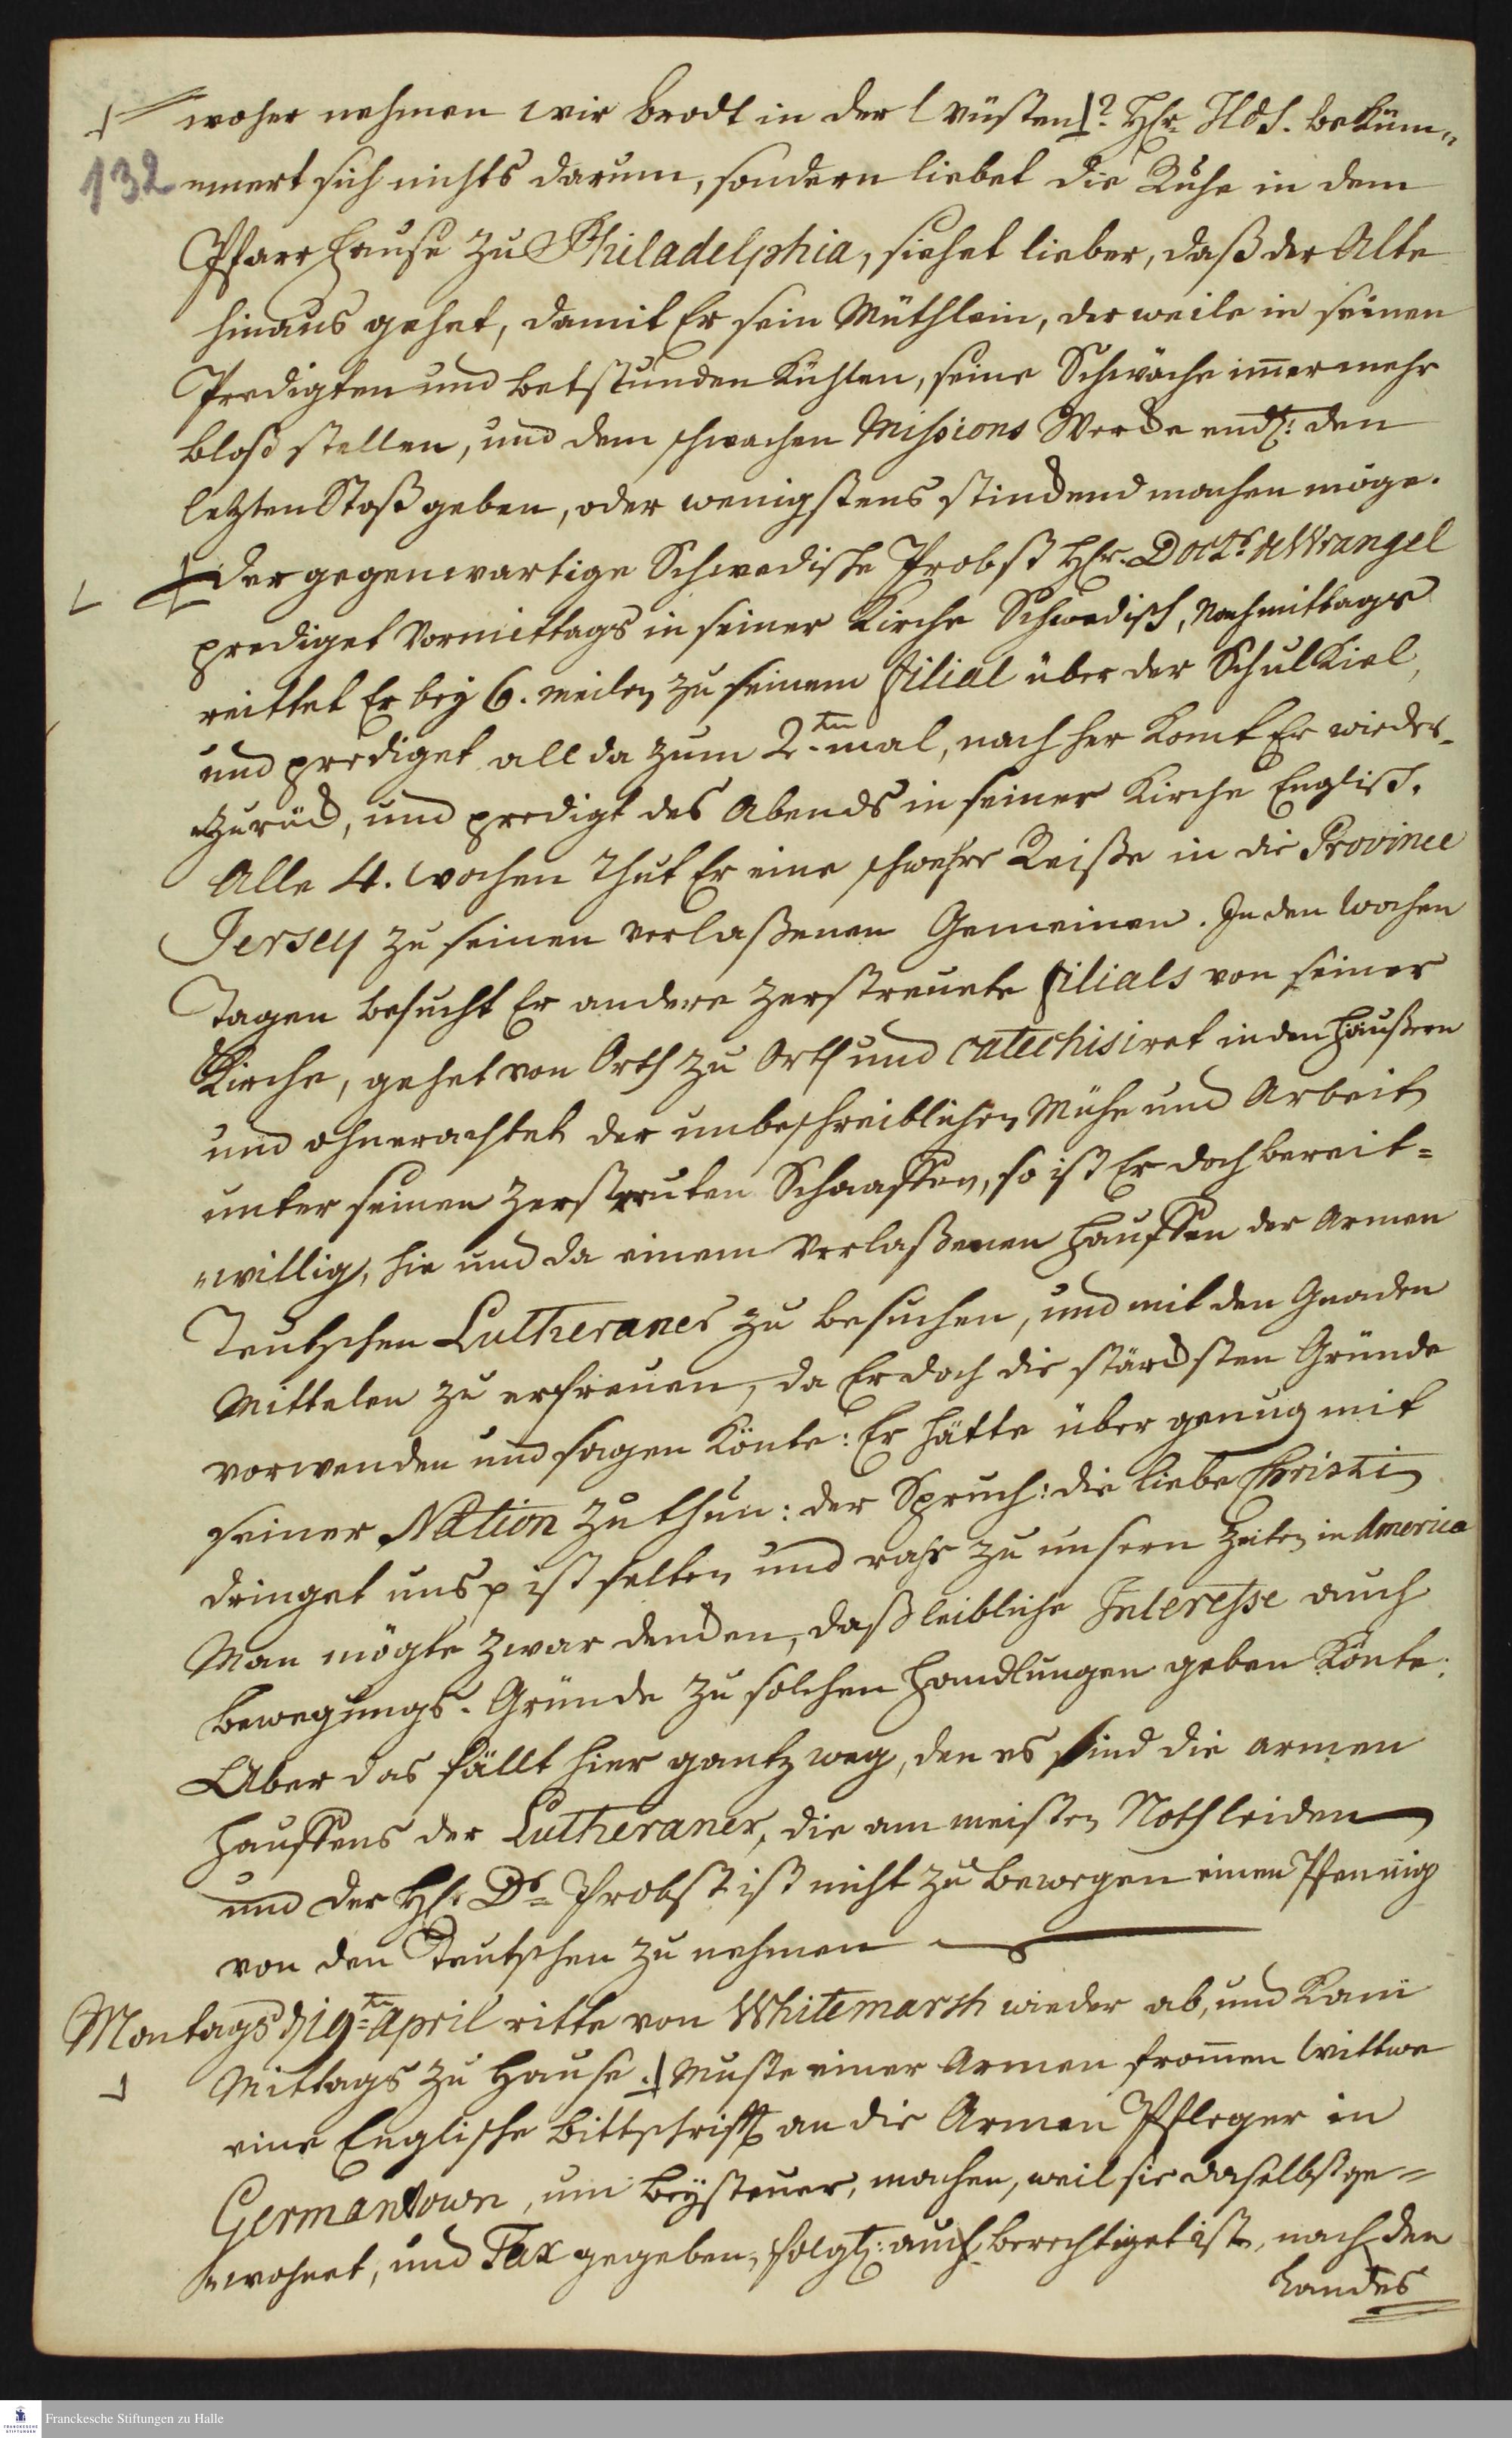 woher nehmen wir brodt in der Wüsten? Hr. Hds. beküm„
132 mert sich nichts darum, sondern liebet die Ruhe in dem
Pfarr Hause zu Philadelphia, siehet lieber, daß der Alte
hinaus gehet, damit Er sein Müthlein, derweile in seinen
Predigten und betstunden kühlen, seine Schwäche im̄ermehr
bloß stellen, und dem schwachen Missions Wercke endl: den
letzten Stoß geben, oder wenigstens stinckend machen möge.
der gegenwartige Schwedische Probst Hr. Doctr. Wrangel
prediget Vormittags in seiner Kirche Schwedisch, Nachmittags
reittet Er bey 6. meilen zu seinem filial über der Schulkiel,
und prediget allda zum 2.ten mal, nach her komt Er wieder-
zurück, und predigt des Abends in seiner Kirche Englisch.
Alle 4. Wochen thut Er eine schwehre Reiße in die Province
Jersey zu seinen verlaßenen Gemeinen. In den Wochen
Tagen besucht Er andere zerstreuete filials von seiner
Kirche, gehet von Orth zu Orth und catechisiret in den Häußern
und ohnerachtet der unbeschreiblichen Mühe und Arbeit
unter seinen zerstreuten Schaaffen, so ist Er doch bereit=
„willig, hie und da einem Verlaßenen Hauffen der Armen
Teutschen Lutheraner zu besuchen, und mit den Gnaden
Mittelen zu erfreuen, da Er doch die stärcksten Gründe
vorwenden und sagen könte: Er hätte über genug mit
seiner Nation zu thun: der Spruch: die liebe Christi
dringet uns p ist selten und rahr zu unsern Zeiten in America
Man mögte zwar dencken, daß leibliche Interesse auch
bewegungs-Gründe zu solchen Handlungen geben könte:
Aber das fällt hier gantz weg, den es sind die armen
Hauffens der Lutheraner, die am meisten Noth leiden
und der Hr. Dr. Probst ist nicht zu bewegen einen Pfennig
von den Teutschen zu nehmen
Montags d 19ten April ritte von Whitemarsh wieder ab, und kam
Mittags zu Hause. Muste einer Armen from̄en Wittwe
eine Englische bittschrifft an die Armen Pfleger in
Germantown, um beysteuer, machen, weil sie daselbst ge=
„wohnet, und Tax gegeben, folgl: auch berechtiget ist, nach den
Landes
Franckesche Stiftungen zu Halle